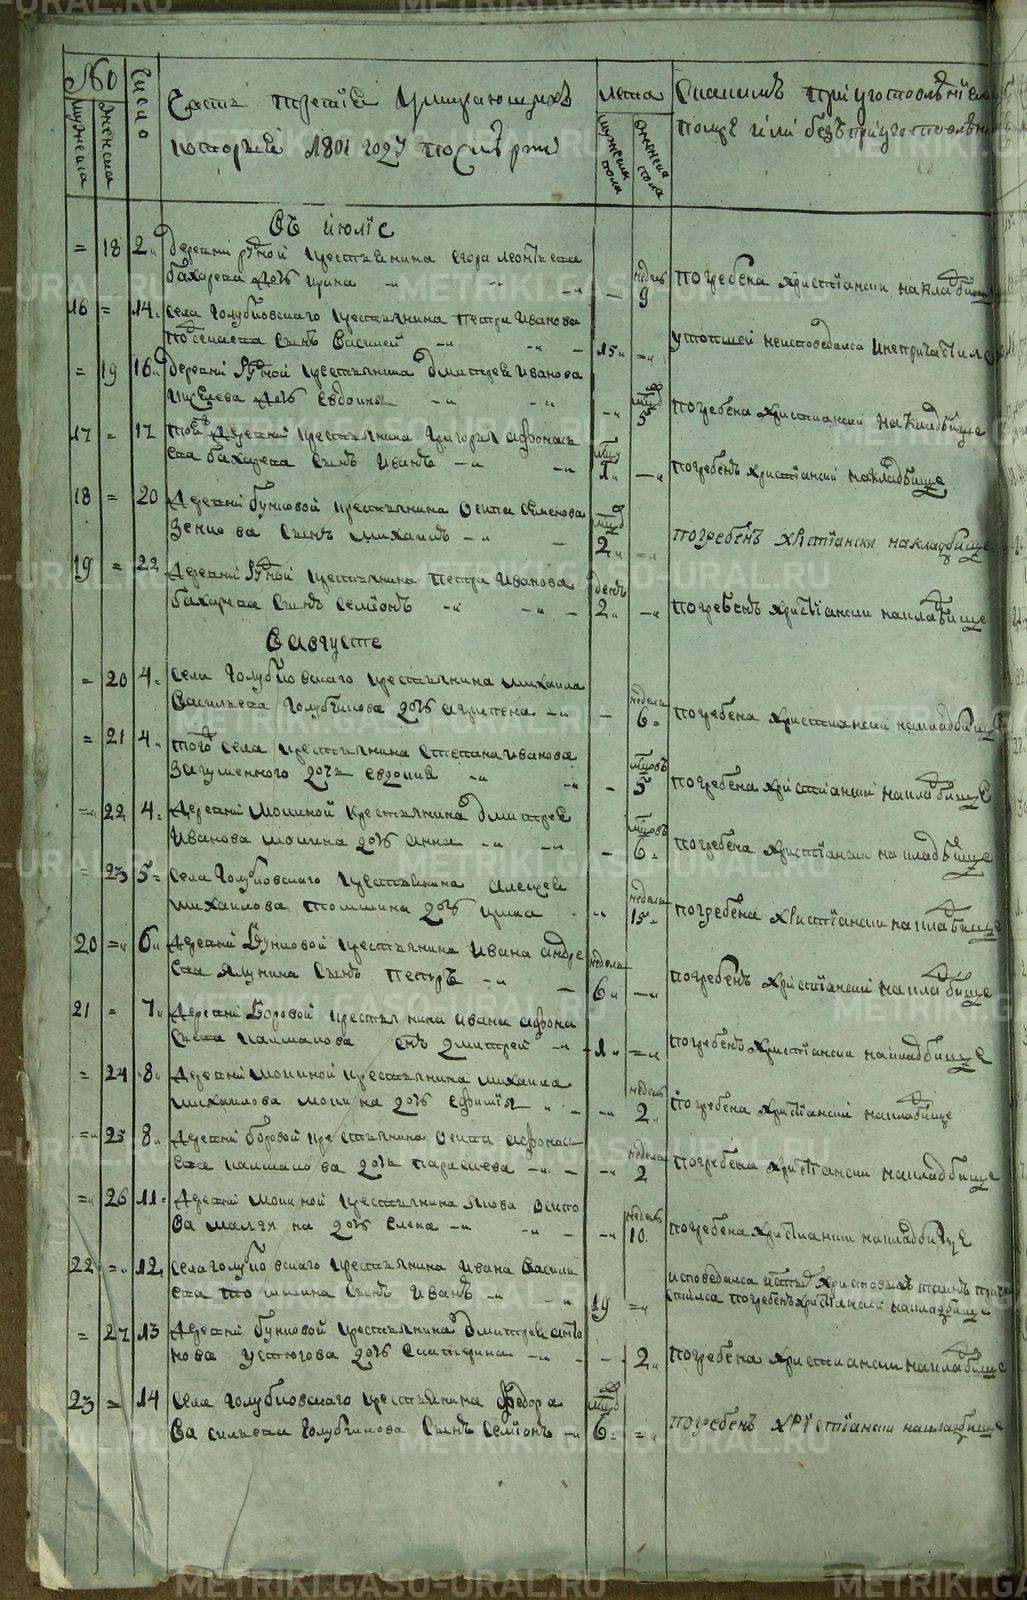 №
число
мужеска
женска
Часть третїѧ ѹмирающихъ
которыи 1801 году посмерти
лета
мужеска пола
женска пола
Скакимъ приуготовленїем
помре или безъ приуготовленї
Въ июлїе
= 18 2 деревни рѣчной крестьянина егора леонтьева
бахарева дочь ирина недель 9 погребена християнски накладбище
16 = 14 села голубковскаго крестьянина петра иванова
сынъ василей 15 утопшей неисповедалса инепричастилс
= 19 16 деревни рѣчной крестьянина дмитрея иванова
киселева дочь евдокия 5 погребена християнски накладбище
17 = 17 тоеже деревни крестьянина григорья афонась
ева бахарева сынъ иванъ 1 погребенъ християнски накладбище
18 = 20 деревни бунковой крестьянина осипа семенова
зенкова сынъ михаилъ 2 погребенъ христїански накладбище
19 = 22 деревни рѣчной крестьянина петра иванова
бахарева сынъ семïонъ день 2 погребенъ христïански накладбище
В августе
= 20 4 села голубковскаго крестьянина михаила
васильева голубчикова дочь агрипена недель 6 погребена християнски накладбище
= 21 4 тогоже села крестьянина степана иванова
загуменного дочь евдокия 5 погребена християнски накладбище
= 22 4 деревни мокиной крестьянина дмитрея
иванова мокина дочь анна 6 погребена християнски на кладбище
= 23 5 села голубковскаго крестьянина алексея
михаилова томшина дочь ирина недель 15 погребена християнски накладбище
20 = 6 деревни бунковой крестьянина ивана андре
ева ялунина сынъ петръ недель 6 погребенъ християнски накладбище
21 = 7 деревни боровой крестьянина ивана афона
сьева калмакова снъ дмитрей 1 погребенъ християнски накладбище
= 24 8 деревни мокиной крестьянина михаила
михаилова мокина дочь ефимïя недель 2 погребена християнски накладбище
= 25 8 деревни боровой крестьянина осипа афонась
ева калмакова дочь парасковa недель 2 погребена християнски накладбище
= 26 11 деревни мокиной крестьянина якова
дочь елена недель 10 погребена християнски накладбище
22 = 12 села голубковскаго крестьянина ивана василь
ева томшина сынъ иванъ 19 исповедалса христовыхъ таинъ
погребенъ християнски накладбище
= 27 13 деревни бунковой крестьянина дмитрея анто
нова устюгова дочь екатерина 2 погребена християнски накладбище
23 = 14 села голубковскаго крестьянина федора
васильева голубчикова сынъ семïонъ 6 погребенъ христïански накладбище
METRIKI.GASO-URAL.RU